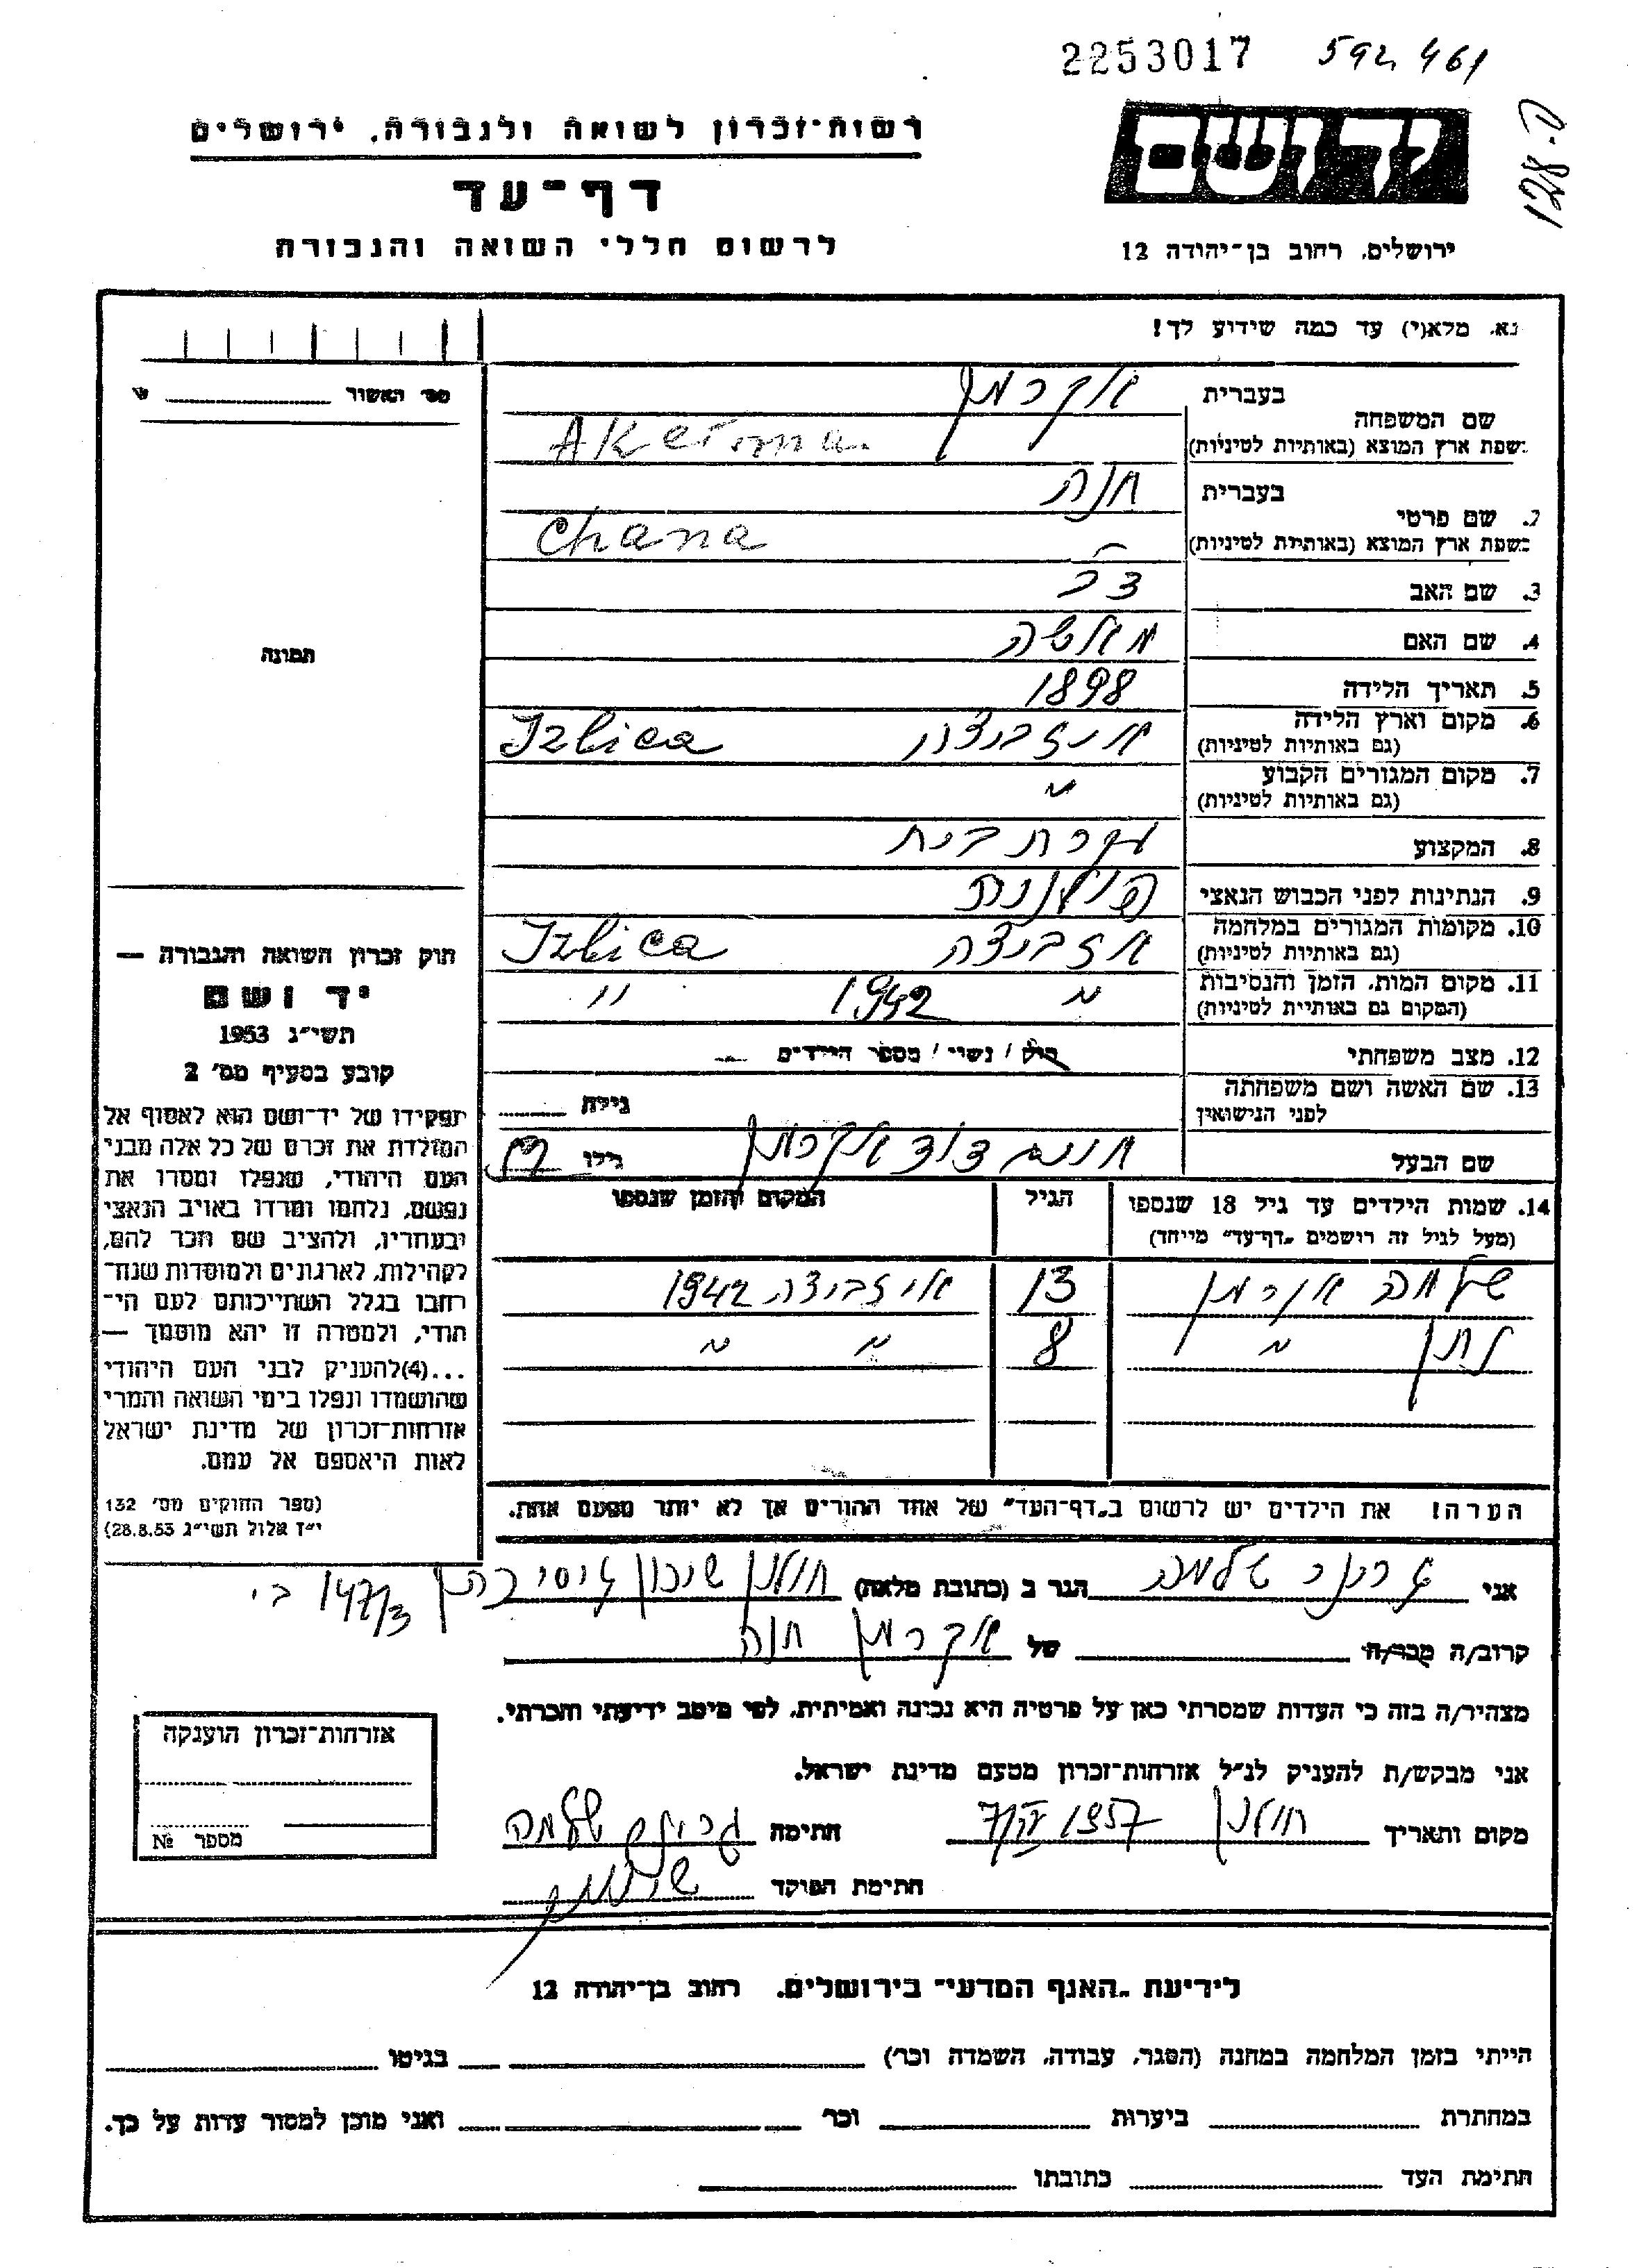 2253017 592 461
רשות־זכרון לשואה ולגבורה, ירושלים
דף־עד
לרשום חללי השואה והגבורה
ידושם
ירושלים, רחוב בן־יהודה 12
נא. מלא(י) עד כמה שידוע לך!
מס׳ האשור
שם המשפחה
בעברית אקרמן
בשפת ארץ המוצא (באותיות לטיניות) Akerma
2. שם פרטי
בעברית חנה
בשפת ארץ המוצא (באותיות לטיניות) Chana
3. שם האב
4. שם האם
5. תאריך הלידה 1898
6. מקום וארץ הלידה איזביצה Izbica
(גם באותיות לטיניות)
7. מקום המגורים הקבוע ״
(גם באותיות לטיניות)
8. המקצוע עקרת בית
9. הנתינות לפני הכבוש הנאצי פולנית
10. מקומות המגורים במלחמה אזביצה Izbica
(גם באותיות לטיניות)
11. מקום המות, הזמן והנסיבות ״ 1942 ״
(המקום גם באותיות לטיניות)
12. מצב משפחתי רווק / נשוי / מספר הילדים
13. שם האשה ושם משפחתה
לפני הנישואין
גילה
שם הבעל חיים דוד אקרמן גילו
14. שמות הילדים עד גיל 18 שנספו הגיל המקום והזמן שנספו
(מעל לגיל זה רושמים „דף־עד״ מייחד)
שלמה אקרמן 13 איזביצה 1942
נתן ״ 8 ״ ״
הערה! את הילדים יש לרשום ב„דף־העד״ של אחד ההורים אך לא יותר מפעם אחת.
תמונה
חוק זכרון השואה והגבורה —
יד ושם
תשי״ג 1953
קובע בסעיף מס׳ 2
תפקידו של יד־ושם הוא לאסוף אל
המולדת את זכרם של כל אלה מבני
העם היהודי, שנפלו ומסרו את
נפשם, נלחמו ומרדו באויב הנאצי
ובעוזריו, ולהציב שם וזכר להם,
לקהילות, לארגונים ולמוסדות שנח־
רבו בגלל השתייכותם לעם הי־
הודי, ולמטרה זו יהא מוסמך —
...(4)להעניק לבני העם היהודי
שהושמדו ונפלו בימי השואה והמרי
אזרחות־זכרון של מדינת ישראל
לאות היאספם אל עמם.
(ספר החוקים מס׳ 132
י״ז אלול תשי״ג 28.8.53)
אני שלמה הגר ב (כתובת מלאה) חולון שיכון 147/3
קרוב/ה מכר/ה של אקרמן חנה
מצהיר/ה בזה כי העדות שמסרתי כאן על פרטיה היא נכונה ואמיתית, לפי מיטב ידיעתי והכרתי.
אני מבקש/ת להעניק לנ״ל אזרחות־זכרון מטעם מדינת ישראל.
מקום ותאריך חולון 1957 חתימה שלמה
חתימת הפוקד
אזרחות־זכרון הוענקה
מספר №
לידיעת „האגף המדעי״ בירושלים, רחוב בן־יהודה 12
הייתי בזמן המלחמה במחנה (הסגר, עבודה, השמדה וכר) בגיטו
במחתרת ביערות וכר ואני מוכן למסור עדות על כך.
חתימת העד כתובתו